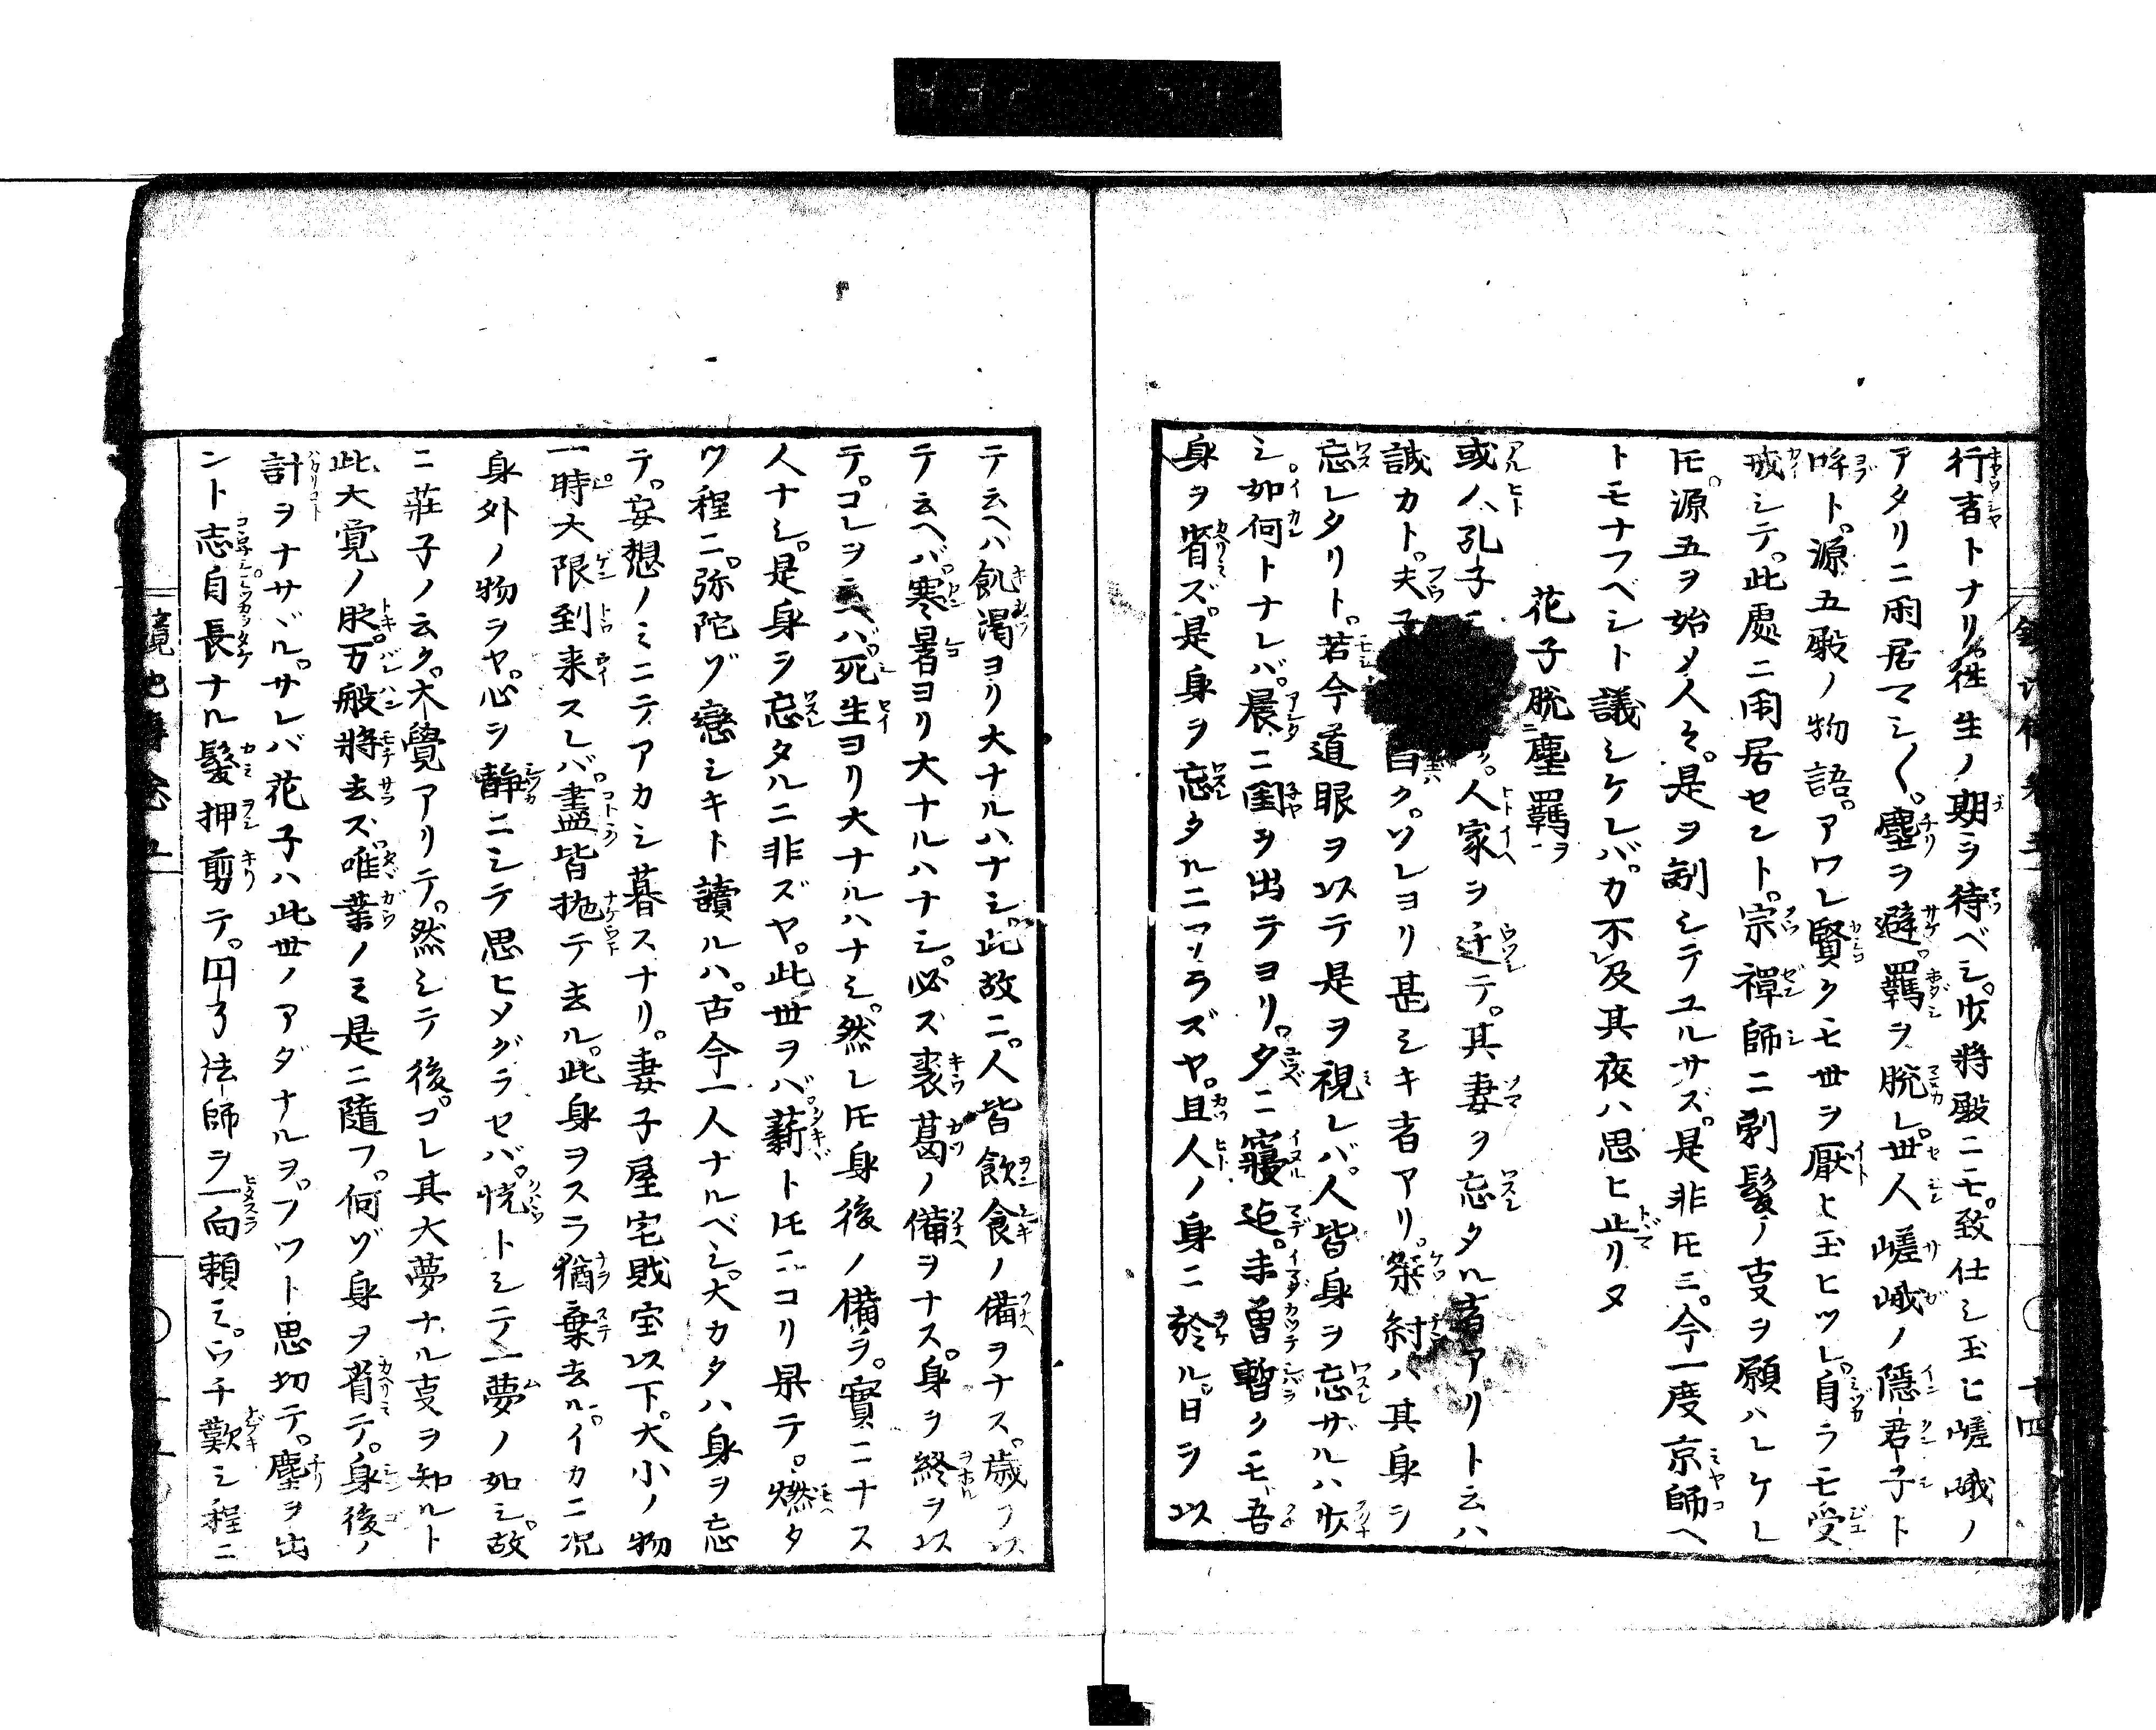 行者トナリ往生ノ期ヲ待ベシ。少将殿ニモ。致仕シ玉ヒ嵯峨ノ
アタリニ閑居マシ〱。塵ヲ避。羈ヲ脱レ。世人嵯峨ノ隱君子ト
呼ト。源五殿ノ物語。アワレ賢クモ世ヲ厭ヒ玉ヒツレ。自ラモ受
戒シテ。此處ニ閑居セント。宗禪師ニ剃髮ノ支ヲ願ハレケレ
𪜈。源五ヲ始メ人々。是ヲ制シテユルサズ。是非𪜈ニ。今一度京師ヘ
トモナフベシト議シケレバ。力不レ及其夜ハ思ヒ止リヌ
花子脱二塵羈一ヲ
或人孔子ニ 人家ヲ迁テ。其妻ヲ忘タル者アリト云ハ
誠カト。夫子 曰ク。ソレヨリ甚シキ者アリ。桀紂ハ其身ヲ
忘レタリト。若今道眼ヲ以テ是ヲ視レバ。人皆身ヲ忘ザルハ少
シ。如何トナレバ。晨ニ閨ヲ出テヨリ。夕ニ寢迠。未曽暫クモ吾
身ヲ省ズ。是身ヲ忘タルニアラズヤ。且人ノ身ニ於ル。日ヲ以
テ云ヘバ飢渇ヨリ大ナルハナシ。此故ニ。人皆飲食ノ備ヲナス。歳ヲ以
テ云ヘバ。寒暑ヨリ大ナルハナシ。必ズ裘葛ノ備ヲナス。身ヲ終ヲ以
テ。コレヲ云ヘバ。死生ヨリ大ナルハナシ。然レ𪜈身後ノ備ヲ。實ニナス
人ナシ。是身ヲ忘タルニ非ズヤ。此世ヲバ薪ト𪜈ニコリ果テ。燃タ
ツ程ニ。弥陀ゾ戀シキト讀ルハ。古今一人ナルベシ。大カタハ身ヲ忘
テ。妄想ノミニテアカシ暮スナリ。妻子屋宅財宝以下。大小ノ物
一時大限到来スレバ。盡皆抛テ去ル。此身ヲスラ猶棄去ル。イカニ况
身外ノ物ヲヤ。心ヲ静ニシテ思ヒメグラセバ。恍トシテ一夢ノ如シ。故
ニ莊子ノ云ク。大覺アリテ。然シテ後。コレ其大夢ナル支ヲ知ルト
此大覚ノ時。万般將去ズ。唯業ノミ是ニ隨フ。何ゾ身ヲ省テ。身後ノ
計ヲナサヾル。サレバ花子ハ此世ノアダナルヲ。フツト思切テ。塵ヲ出
ント志自長ナル髮押剪テ。円了法師ヲ一向頼ミ。ウチ歎シ程ニ